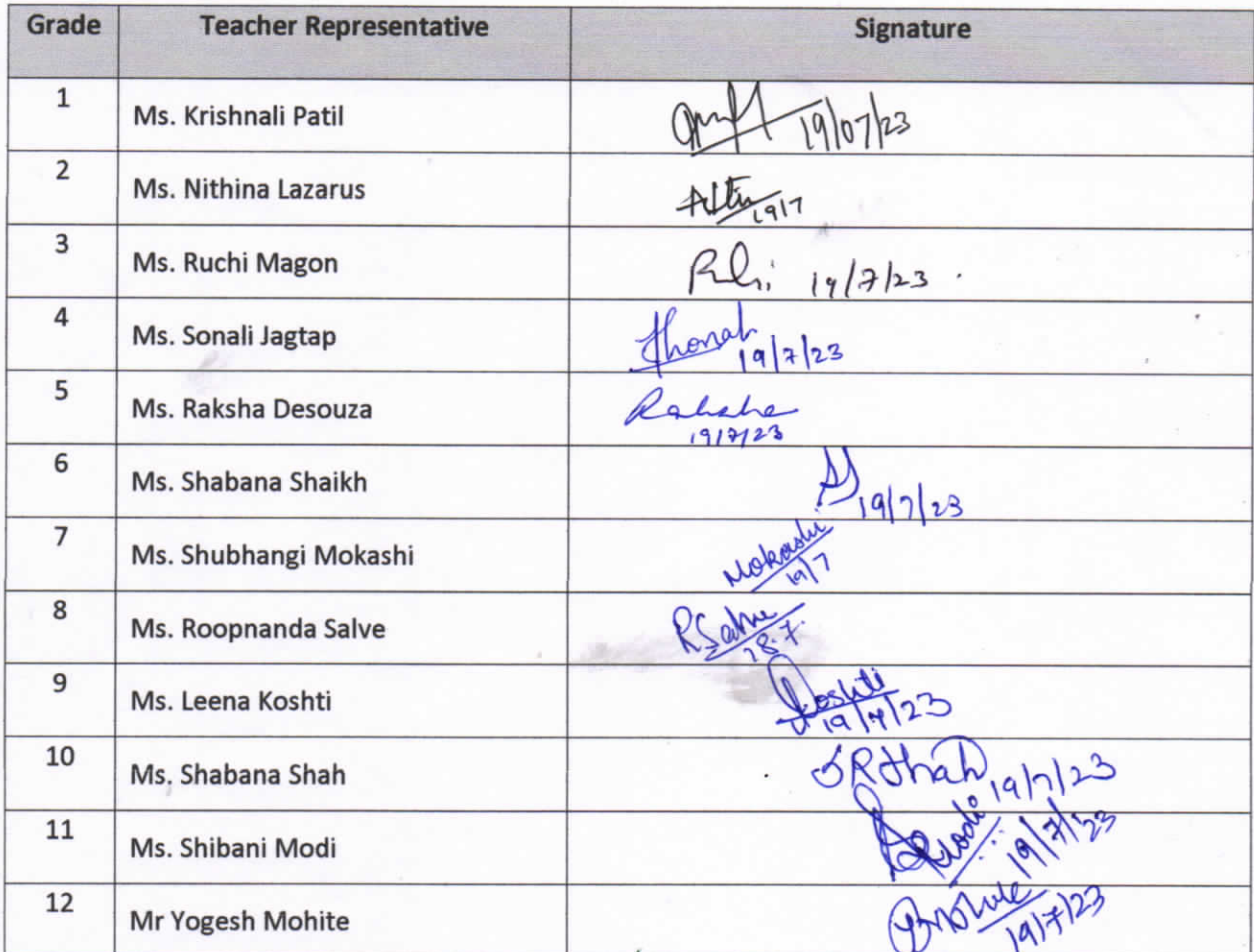 Grade Teacher Representative Signature
1 Ms. Krishnali Patil 19/07/23
2 Ms. Nithina Lazarus 19/7
3 Ms. Ruchi Magon 19/7/23
4 Ms. Sonali Jagtap 19/7/23
5 Ms. Raksha Desouza Raksha
19/7/23
6 Ms. Shabana Shaikh 19/7/23
7 Ms. Shubhangi Mokashi Mokashi
19/7
8 Ms. Roopnanda Salve RSalve
28.7.
9 Ms. Leena Koshti Koshti
19/7/23
10 Ms. Shabana Shah SRShah 19/7/23
11 Ms. Shibani Modi Modi 19/7/23
12 Mr Yogesh Mohite 19/7/23